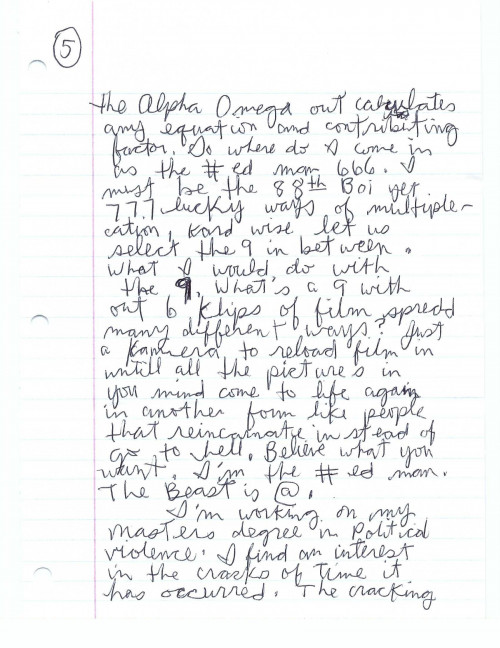 5
the Alpha Omega out calculates
any equation and contributing
factor. So where do I come in
as the # ed man 666. I
must be the 88th Boi yet
777 lucky ways of multiple-
cation, Kard wise let us
select the 9 in between.
What I would do with
the 9. What's a 9 with
out 6 Klips of film spredd
many different ways? Just
a Kamera to reload film in
untill all the picture's in
you mind come to life again
in another form like people
that reincarnate in stead of
go to hell. Believe what you
want. I'm the # ed man.
The Beast is @.
I'm working on my
masters degree in Political
violence. I find an interest
in the cracks of Time it
has occurred. The cracking